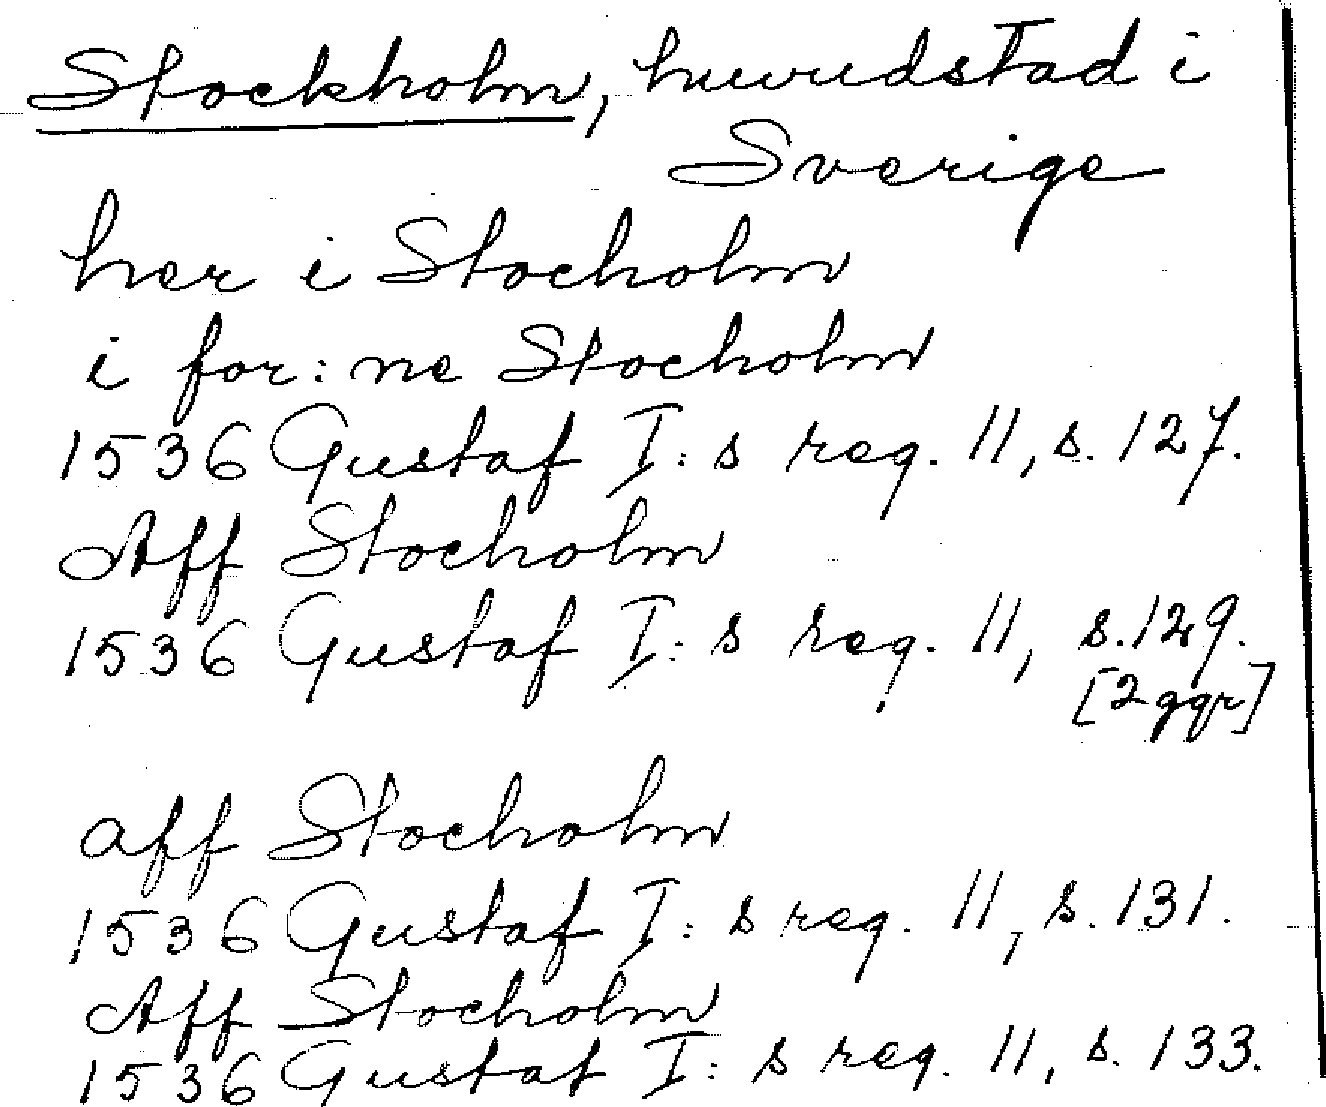 Stockholm, huvudstad i
Sverige
her i Stocholm
i for: ne Stocholm
1536 Gustaf I: s reg. 11, s. 127.
Aff Stocholm
1536 Gustaf I: s reg. 11, s. 129.
[2 ggr]
aff Stocholm
1536 Gustaf I: s reg. 11, s. 131.
Aff Stocholm
1536 Gustaf I: s reg. 11, s. 133.